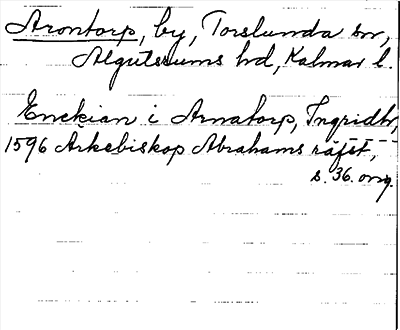 Arontorp, by, Torslunda sn,
Algutsrums hd, Kalmar l.
Enekian i Arnatorp, Ingridtr,
1596 Arkebiskop Abrahams räfst,
s. 36. orig.